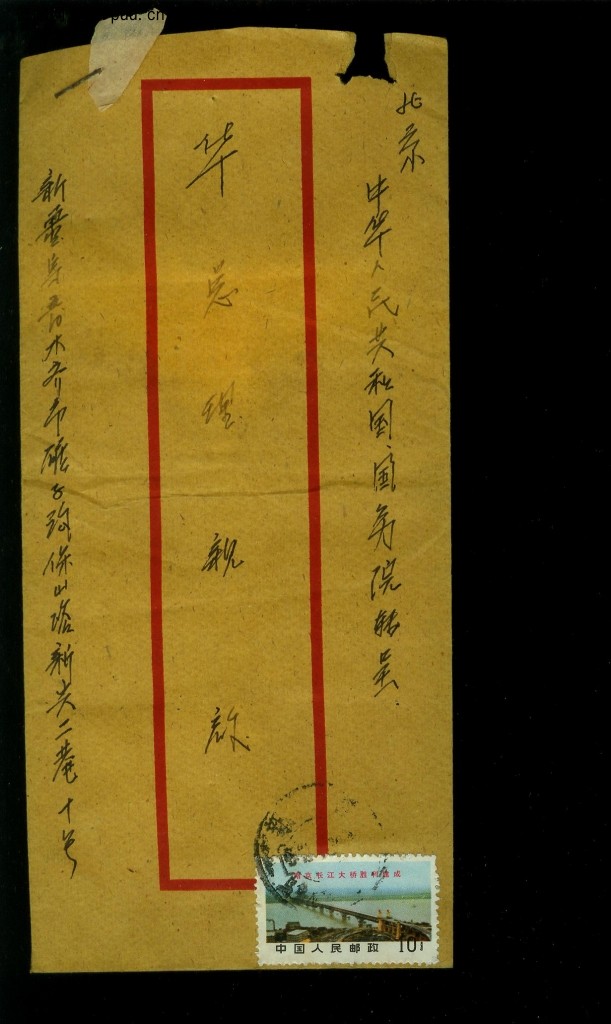 北京
中华人民共和国国务院转呈
华总理亲启
新疆乌鲁木齐市碱子沟保山路新夹二巷十号
南京长江大桥胜利建成
中国人民邮政
10分